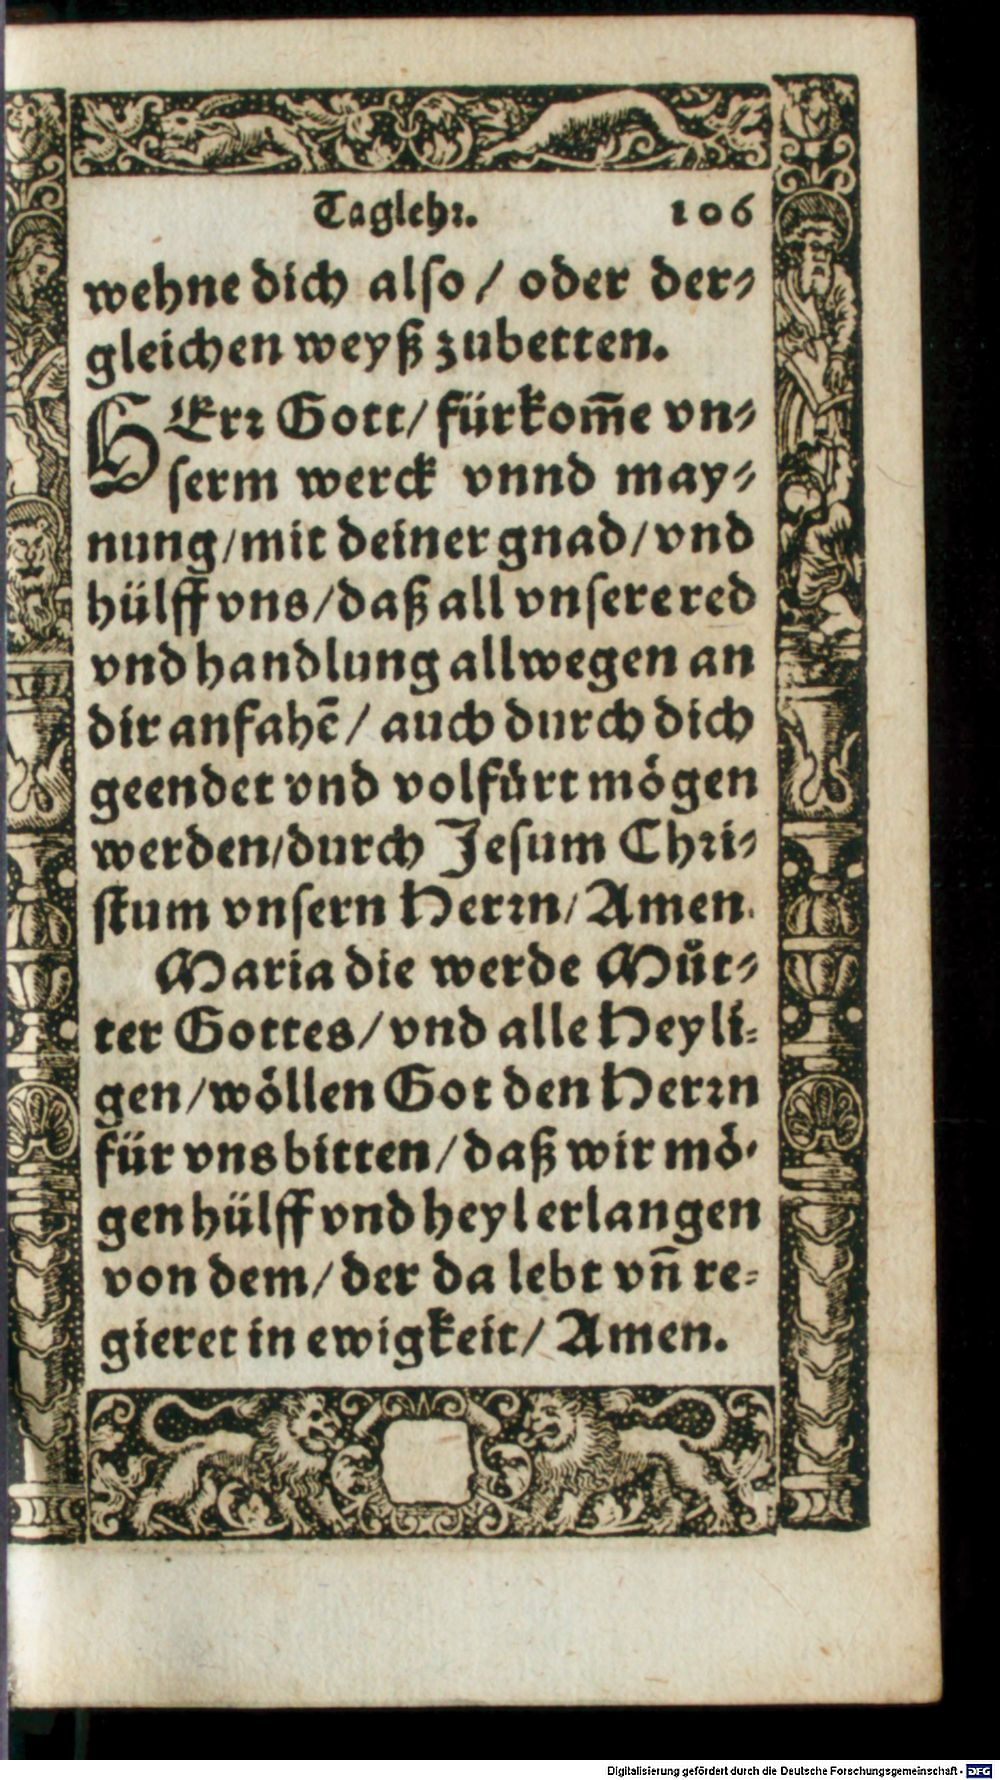 Taglehꝛ. 106
wehne dich also / oder der⸗
gleichen weyß zubetten.
HErꝛ Gott/ fürkom̃e vn⸗
serm werck vnnd may⸗
nung/mit deiner gnad/vnd
hülff vns/daß all vnsere red
vnd handlung allwegen an
dir anfahẽ/ auch durch dich
geendet vnd volfürt mögen
werden/durch Jesum Chꝛi⸗
stum vnsern Herꝛn/Amen.
Maria die werde Můt⸗
ter Gottes/vnd alle Heyli⸗
gen/wöllen Got den Herꝛn
für vns bitten/daß wir mö⸗
gen hülff vnd heyl erlangen
von dem/der da lebt vñ re⸗
gieret in ewigkeit/ Amen.
Digitalisierung gefördert durch die Deutsche Forschungsgemeinschaft - DFG